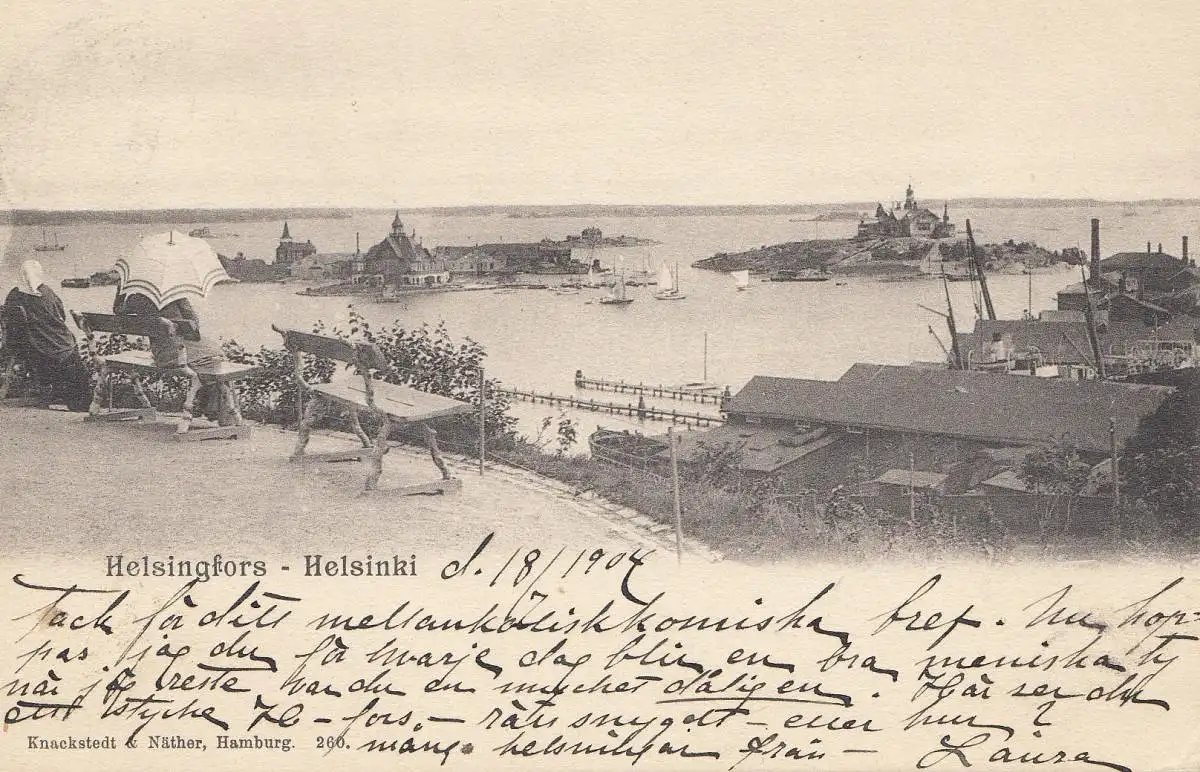 Helsingfors - Helsinki d. 18/1 1904
Tack för ditt mellankoliskkomiska bref. Nu hop-
pas jag du för hvarje dag blir en bra meniska ty
när jag reste var du en mycket dålig en. Här ser du
ett stycke H-fors, - rätt snygdt - eller hur?
Knackstedt & Näther, Hamburg. 260. många helsningar från - Laura